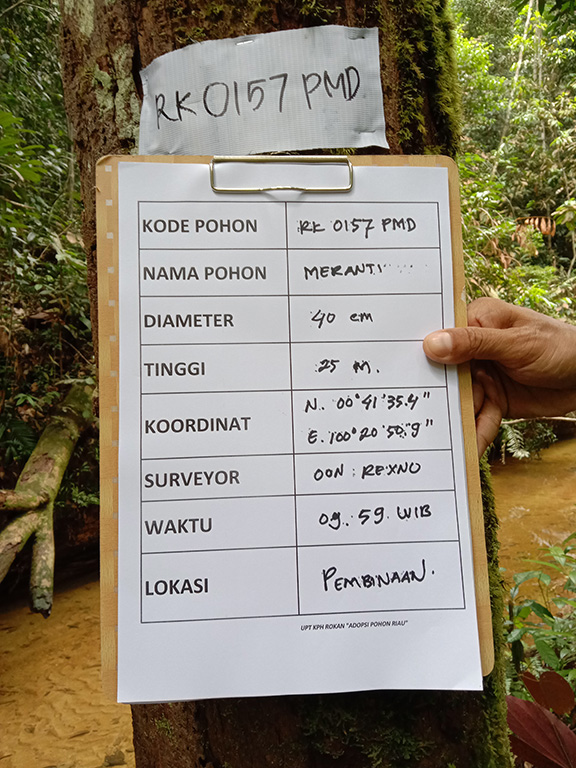 RK 0157 PMD
KODE POHON RK 0157 PMD
NAMA POHON MERANTI
DIAMETER 40 cm
TINGGI 25 M.
KOORDINAT N. 00°41'35.4"
E. 100°20'50.9"
SURVEYOR OON : REXNO
WAKTU 09. 59. WIB
LOKASI PEMBINAAN.
UPT KPH ROKAN "ADOPSI POHON RIAU"